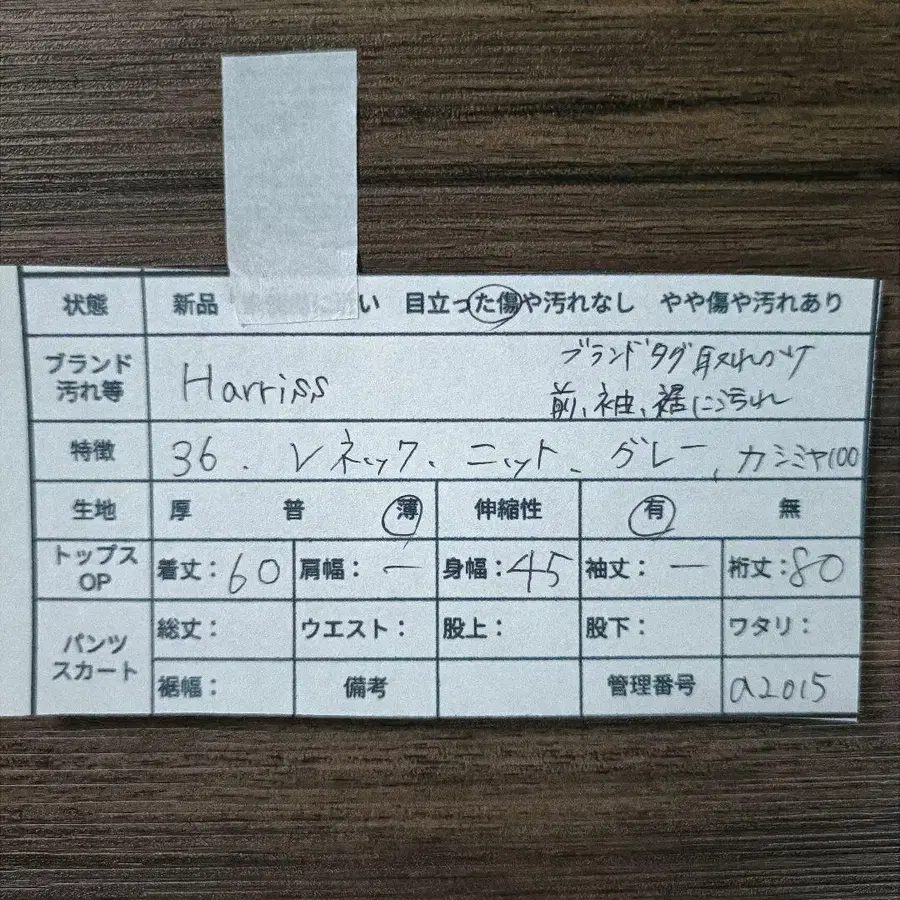 状態 新品 い 目立った傷や汚れなし やや傷や汚れあり
ブランド 汚れ等 Harriss ブランドタグ取れかけ
前、袖、裾に汚れ
特徴 36. Vネック、ニット、グレー、カシミヤ100
生地 厚 普 薄 伸縮性 有 無
トップス OP 着丈:60 肩幅:ー 身幅:45 袖丈:ー 裄丈:80
パンツ スカート 総丈: ウエスト: 股上: 股下: ワタリ:
裾幅: 備考 管理番号 a2015